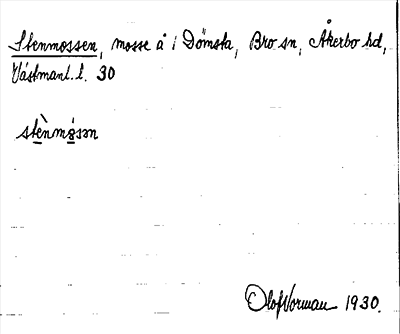 Stenmossen, mosse å i Dömsta, Bro sn, Åkerbo hd,
Västmanl. l. 30
stènmåsən
Olof Norman 1930.